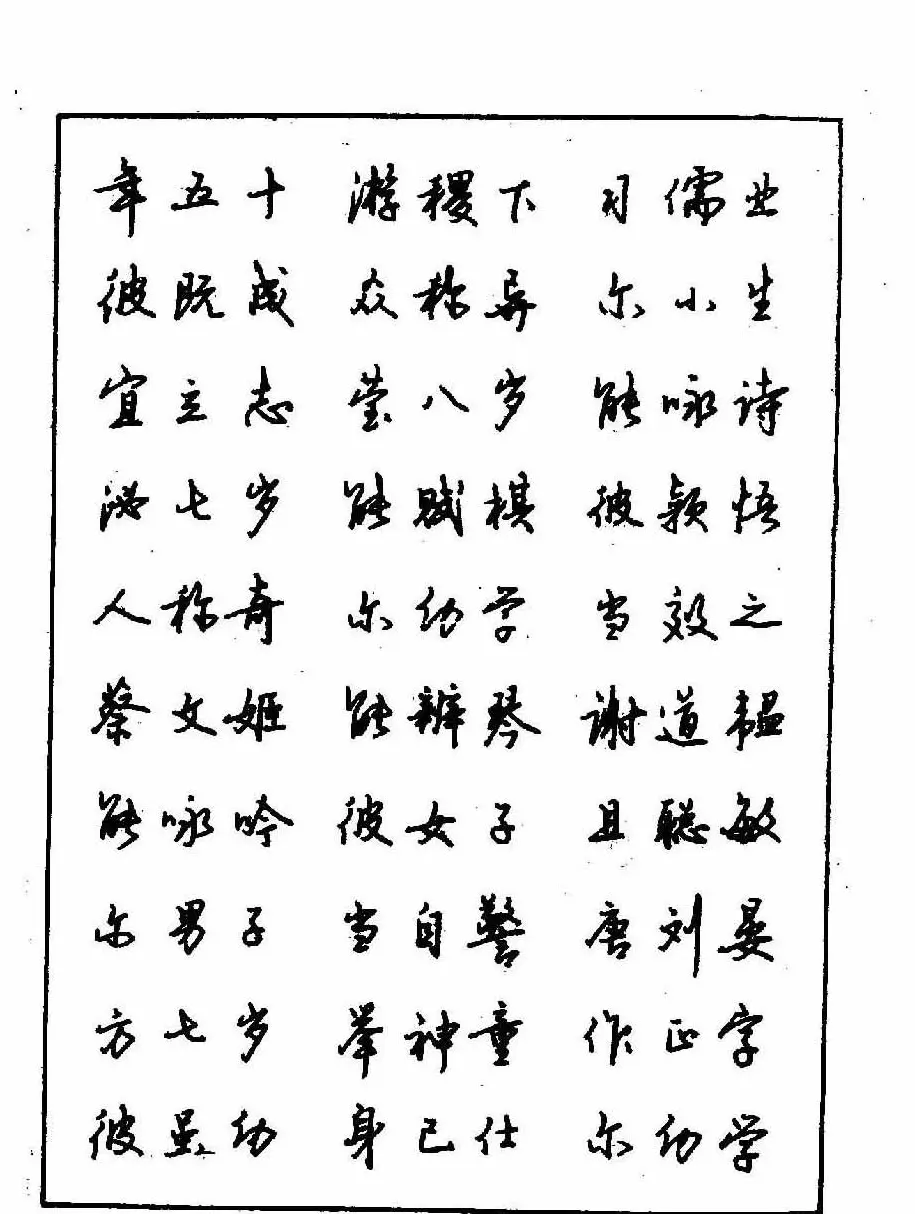 年五十 游稷下 习儒业
彼既成 众称异 尔小生
宜立志 莹八岁 能咏诗
泌七岁 能赋棋 彼颖悟
人称奇 尔幼学 当效之
蔡文姬 能辨琴 谢道韫
能咏吟 彼女子 且聪敏
尔男子 当自警 唐刘晏
方七岁 举神童 作正字
彼虽幼 身已仕 尔幼学